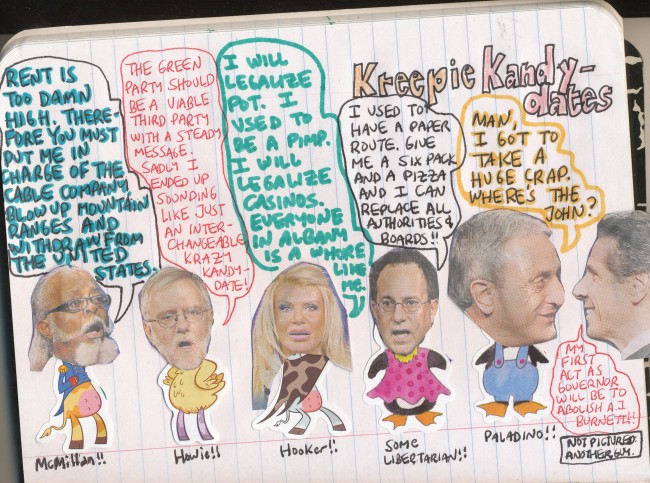 Kreepie Kandy-
dates
RENT IS
TOO DAMN
HIGH. THERE-
FORE YOU MUST
PUT ME IN
CHARGE OF THE
CABLE COMPANY,
BLOW UP MOUNTAIN
RANGES AND
WITHDRAW FROM
THE UNITED
STATES.
THE GREEN
PARTY SHOULD
BE A VIABLE
THIRD PARTY
WITH A STEADY
MESSAGE.
SADLY I
ENDED UP
SOUNDING
LIKE JUST
AN INTER-
CHANGEABLE
KRAZY
KANDY-
DATE!
I WILL
LEGALIZE
POT. I
USED TO
BE A PIMP.
I WILL
LEGALIZE
CASINOS.
EVERYONE
IN ALBANY
IS A WHORE
LIKE
ME.
I USED TO
HAVE A PAPER
ROUTE. GIVE
ME A SIX PACK
AND A PIZZA
AND I CAN
REPLACE ALL
AUTHORITIES &
BOARDS!!
MAN,
I GOT TO
TAKE A
HUGE CRAP.
WHERE'S THE
JOHN?
MY
FIRST
ACT AS
GOVERNOR
WILL BE TO
ABOLISH A.J.
BURNETT!!
McMillan!!
Howie!!
Hooker!!
SOME
LIBERTARIAN!!
PALADINO!!
NOT PICTURED:
ANOTHER GUY.